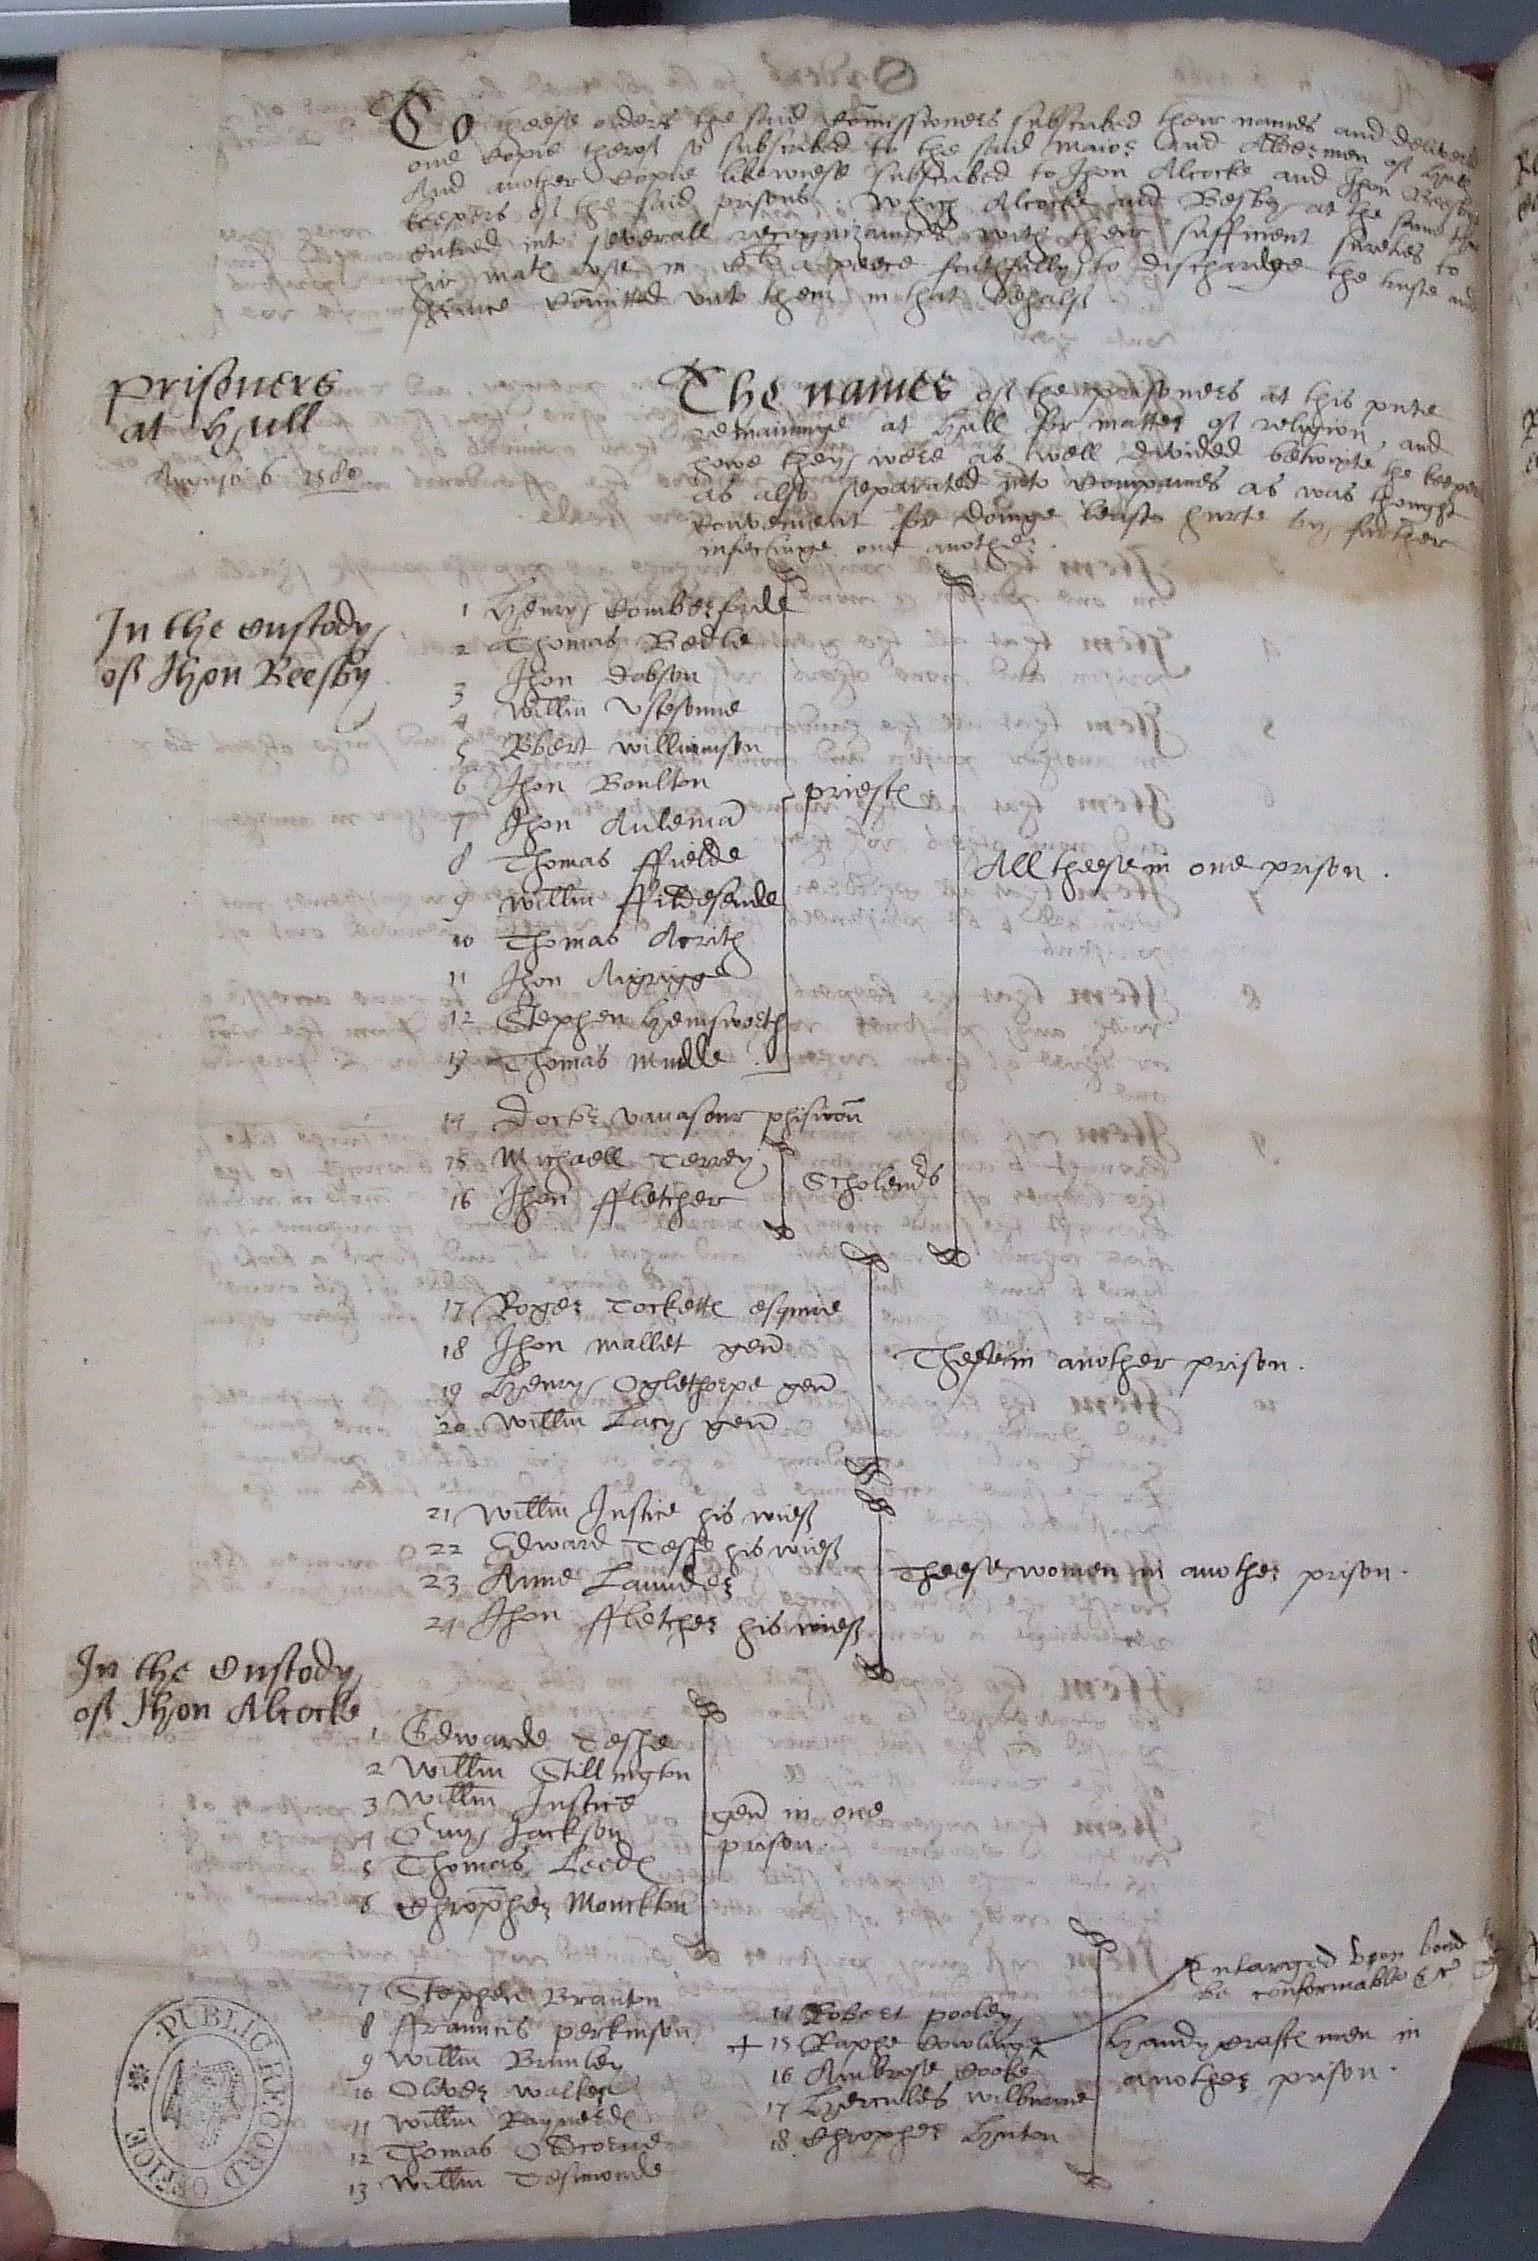 To theese orders the said Comissioners subscribed their names and delivered
one Copie therof so subscribed to the said Maior and Aldermen of Hull
And another Copie likewiese subscribed to Jhon Alcocke and Jhon Beesby
keepers of the said prisons. Which Alcocke and Beesby at the same tyme
entred into severall recognizaunces with their sufficient sureties to
hir use in a peece faithfully to discharge the truste and
charne Comitted unto them in that behalf
prisoners
at Hull
August 6 1580
The names of the prisoners at this pnte
remaininge at Hull for matter of religion, and
howe they were as well devided betwixte the keepers
as also separated into Companies as was thought
Convenient for doinge leaste hurte by further
infectinge one another.
In the Custody
of Jhon Beesby
1 Henry Comberforde
2 Thomas Bedle
3 Jhon Dobson
4 Willm Ustesonne
5 Robert Williamson
6 Jhon Boulton
7 Jhon Aulema
8 Thomas ffielde
9 Willm
10 Thomas Acrith
11 Jhon
12 Stephen Hemsworth
13 Thomas Mudde
priestes
All theese in one prison.
14 Doctr Vavasour phisicon
15 Michaell Terrey
16 Jhon ffletcher
Scholemrs
17 Roger Tockettes esquire
18 Jhon Mallet gen
19 Henry Oglethorpe gen
20 Willm Lacy gen
These in another prison.
21 Willm Justice his wief
22 Edward Teshe his wief
23 Anne Launder
24 Jhon ffletcher his wief
Theese women in another prison.
In the Custody
of Jhon Alcocke
1 Edwarde Teshe
2 Willm Stillington
3 Willm Justice
4 Guy Jackson
5 Thomas Leedes
6 Chropher Monckton
gen in one
prison.
7 Stephen Branton
8 ffrauncis Perkinson
9 Willm Brimley
10 Oliver Walker
11 Willm
12 Thomas
13 Willm Tesimonde
14 Robert Pooley
+ 15 Raphe Cowlinge
16 Ambrose Cooke
17 Hercules Wilburne
18 Chropher Hutton
Enlarged upon bond to
be conformable &c
Handy craftes men in
another prison.
PUBLIC RECORD OFFICE